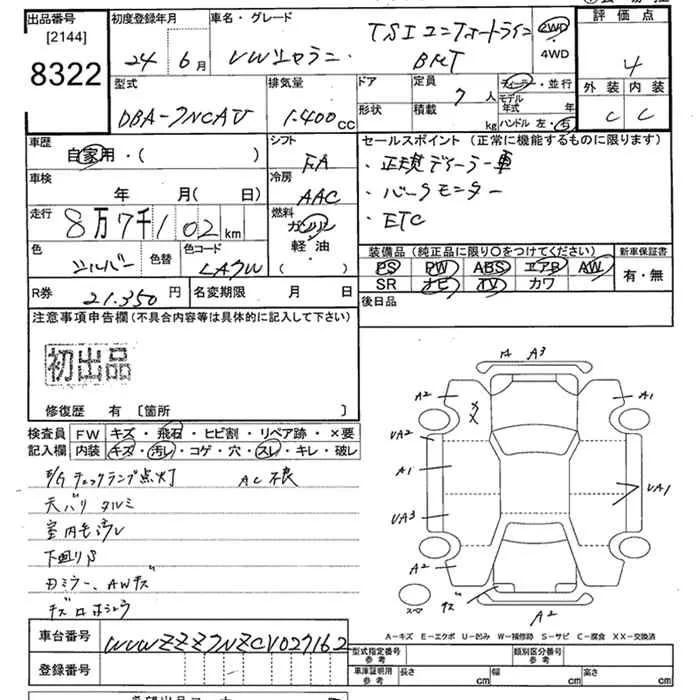 出品番号
[2144]
8322
初度登録年月
24年 6月
車名・グレード
VWシャラン
TSIコンフォートライン
BMT
2WD
4WD
評価点
4
外装 内装
C C
型式
DBA-7NCAV
排気量
1.400 CC
ドア
形状
定員
7人
積載
kg
ディーラー・並行
モデル年式 年
ハンドル 左・右
車歴
自家用・( )
シフト
FA
車検
年 月(日)
冷房
AAC
走行
8万7千102km
燃料
ガソリン
軽・油
( )
色
シルバー
色替
色コード
LA7W
セールスポイント(正常に機能するものに限ります)
・正規ディーラー車
・バックモニター
・ETC
装備品(純正品に限り○をつけてください)
PS PW ABS エアB AW
SR ナビ TV カワ
新車保証書
有・無
R券 21.350円
名変期限 月 日
後日品
注意事項申告欄(不具合内容等は具体的に記入して下さい)
初出品
修復歴 有 [箇所 ]
検査員
記入欄
FW キズ・飛石・ヒビ割・リペア跡・×要
内装 キズ・汚レ・コゲ・穴・スレ・キレ・破レ
E/Gチェックランプ点灯 AC不良
天バリタルミ
室内毛汚レ
下廻りS
Dミラー、AWキズ
A3
A2
A1
XX
UA2
A1
UA1
UA3
A2
A2
スマ
キズ
A2
A-キズ E-エクボ U-凹み W-補修跡 S-サビ C-腐食 XX-交換済
車台番号
WVWZZZ7NZCV027162
登録番号
型式指定番号
参考
類別区分番号
参考
車庫証明用
参考
長さ cm
幅 cm
高さ cm